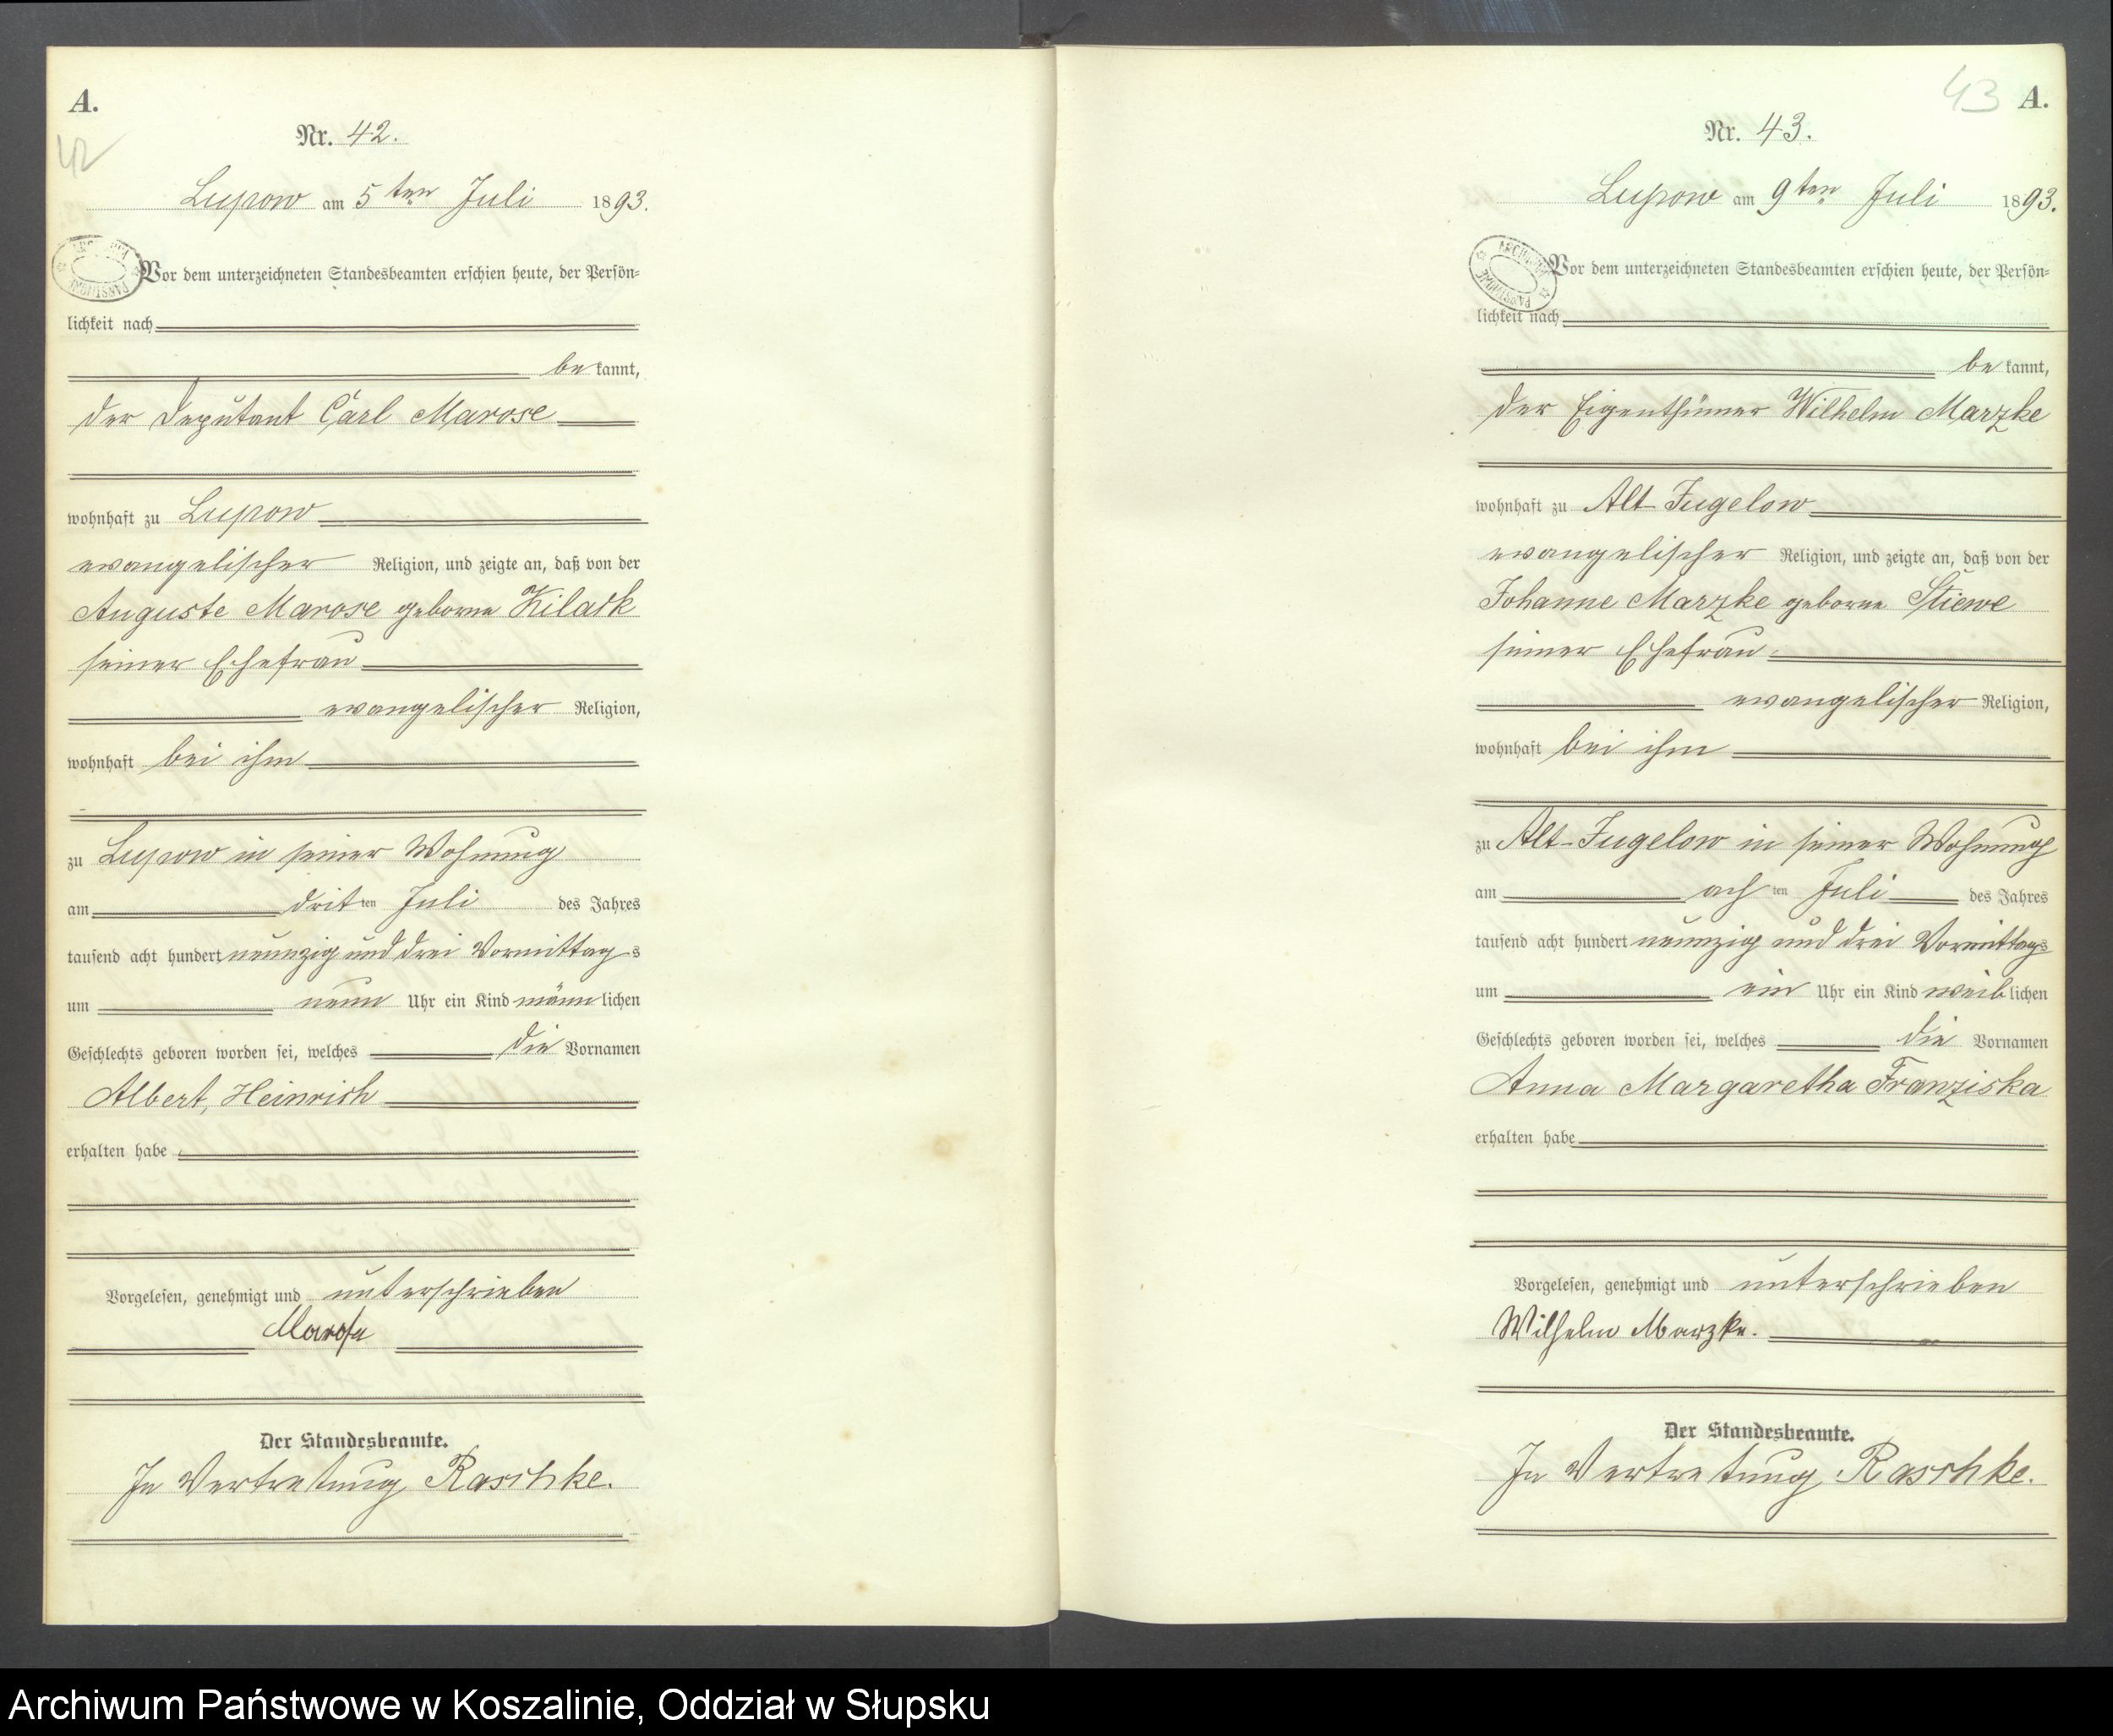 A.
42
Nr. 42.
Lupow am 5ten Juli 1893.
ARCHIWUM PAŃSTWOWE
Vor dem unterzeichneten Standesbeamten erschien heute, der Persön=
lichkeit nach
be kannt,
der Deputant Carl Marose
wohnhaft zu Lupow
evangelischer Religion, und zeigte an, daß von der
Auguste Marose geborne Kilask
seiner Ehefrau
evangelischer Religion,
wohnhaft bei ihm
zu Lupow in seiner Wohnung
am dritten Juli des Jahres
tausend acht hundert neunzig und drei Vormittags
um neun Uhr ein Kind männlichen
Geschlechts geboren worden sei, welches die Vornamen
Albert, Heinrich
erhalten habe
Vorgelesen, genehmigt und unterschrieben
Marose
Der Standesbeamte.
In Vertretung Raschke.
43 A.
Nr. 43.
Lupow am 9ten Juli 1893.
ARCHIWUM PAŃSTWOWE
Vor dem unterzeichneten Standesbeamten erschien heute, der Persön=
lichkeit nach
be kannt,
der Eigenthümer Wilhelm Marzke
wohnhaft zu Alt-Jugelow
evangelischer Religion, und zeigte an, daß von der
Johanne Marzke geborne Stiewe
seiner Ehefrau
evangelischer Religion,
wohnhaft bei ihm
zu Alt-Jugelow in seiner Wohnung
am achten Juli des Jahres
tausend acht hundert neunzig und drei Vormittags
um ein Uhr ein Kind weiblichen
Geschlechts geboren worden sei, welches die Vornamen
Anna Margaretha Franziska
erhalten habe
Vorgelesen, genehmigt und unterschrieben
Wilhelm Marzke.
Der Standesbeamte.
In Vertretung Raschke.
Archiwum Państwowe w Koszalinie, Oddział w Słupsku